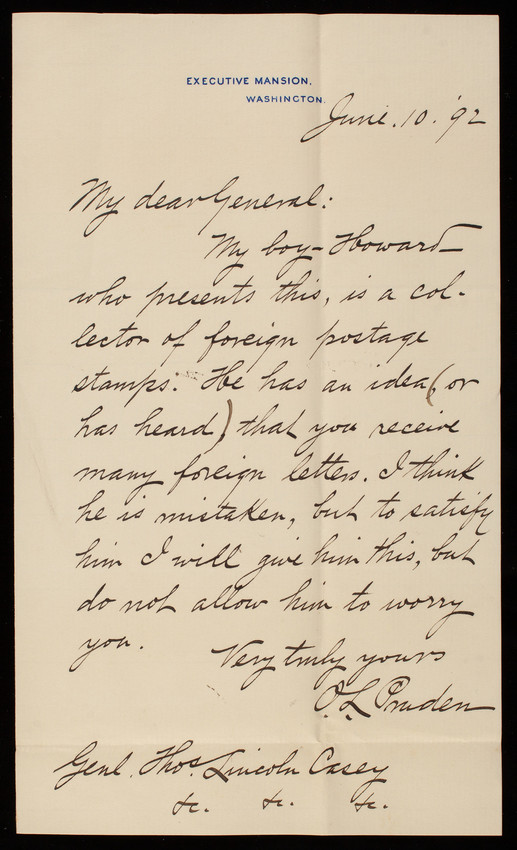 EXECUTIVE MANSION,
WASHINGTON.
June. 10. '92
My dear General:
My boy - Howard -
who presents this, is a col-
lector of foreign postage
stamps. He has an idea (or
has heard) that you receive
many foreign letters. I think
he is mistaken, but to satisfy
him I will give him this, but
do not allow him to worry
you.
Very truly yours
O. L. Pruden
Genl. Thos. Lincoln Casey
&c. &c. &c.